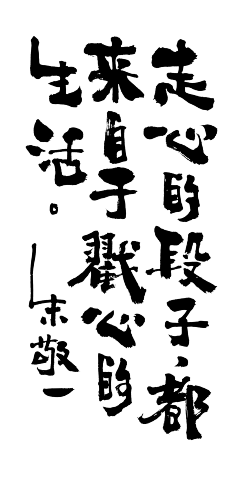 走心的段子、都
来自于戳心的
生活。
朱敬一